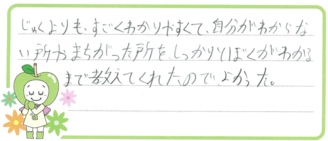 じゅくよりも、すごくわかりやすくて、自分がわからな
い所やまちがった所を、しっかりぼくがわかる
まで教えてくれたので、よかった。